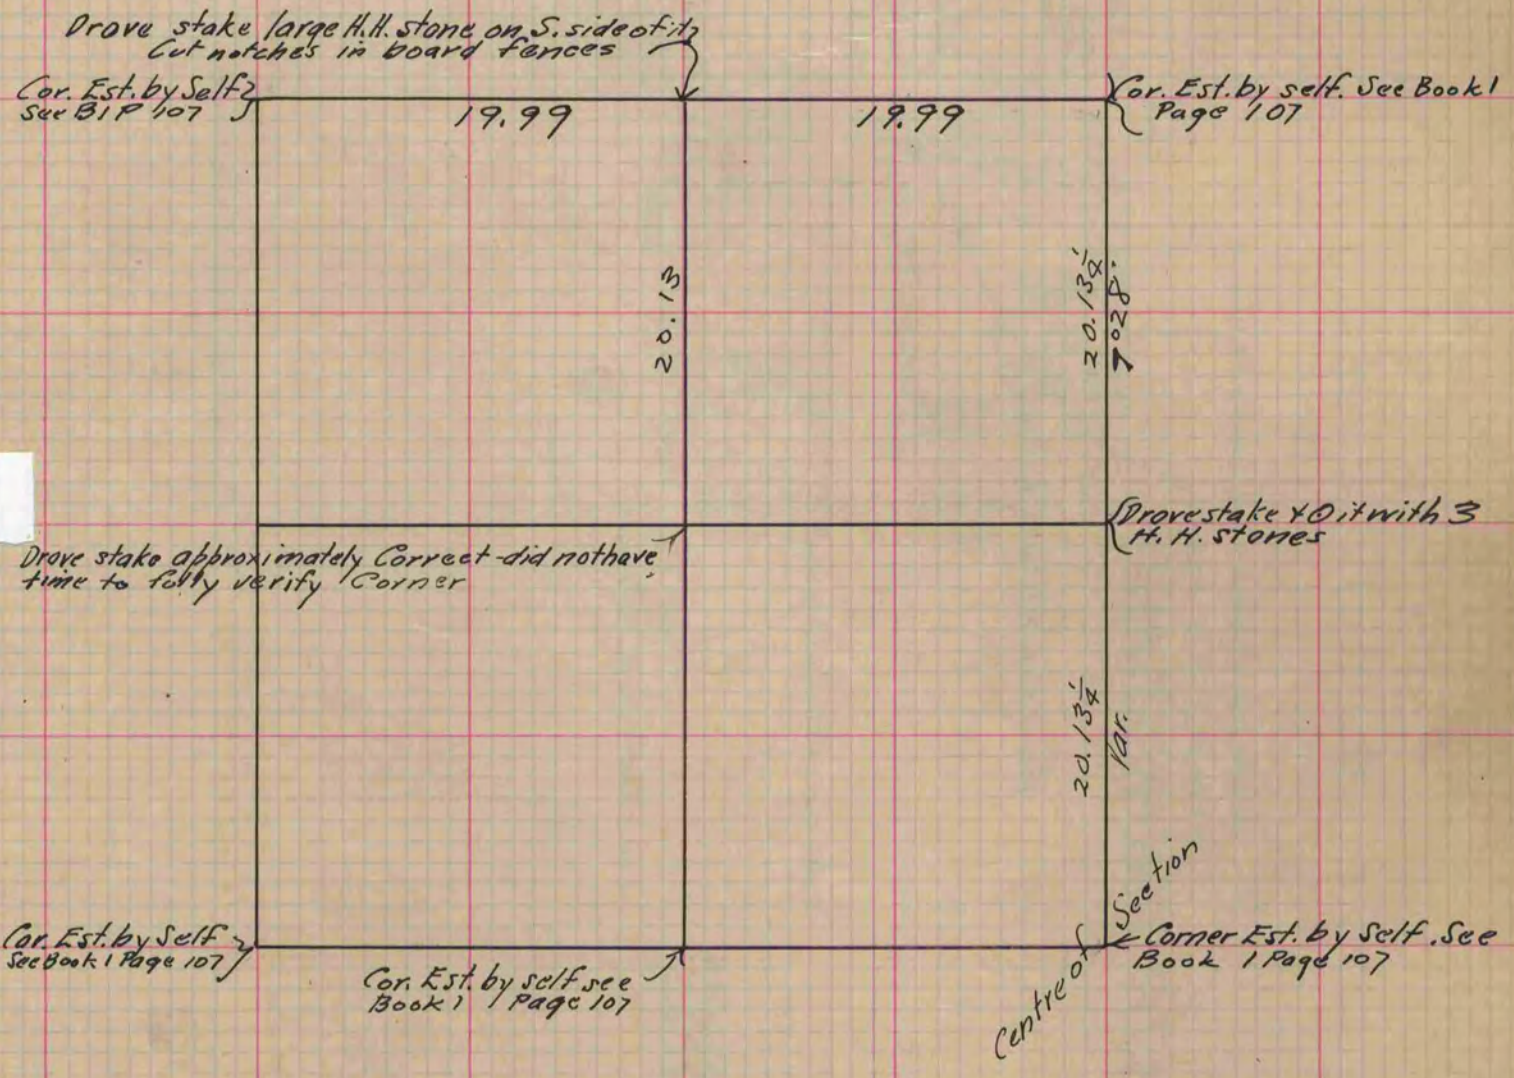 Drove stake large H.H. stone on S. side of it,
Cut notches in board fences
Cor. Est. by Self
See B1 P 107
19.99
19.99
Cor. Est. by self. See Book 1
Page 107
20.13
20.13¼
7°28'
Drove stake & ⊙ it with 3
H. H. stones
Drove stake approximately Correct - did not have
time to fully verify Corner
20.13¼
Var.
Centre of Section
Cor. Est. by Self
See Book 1 Page 107
Cor. Est. by self see
Book 1 Page 107
Corner Est. by Self. See
Book 1 Page 107